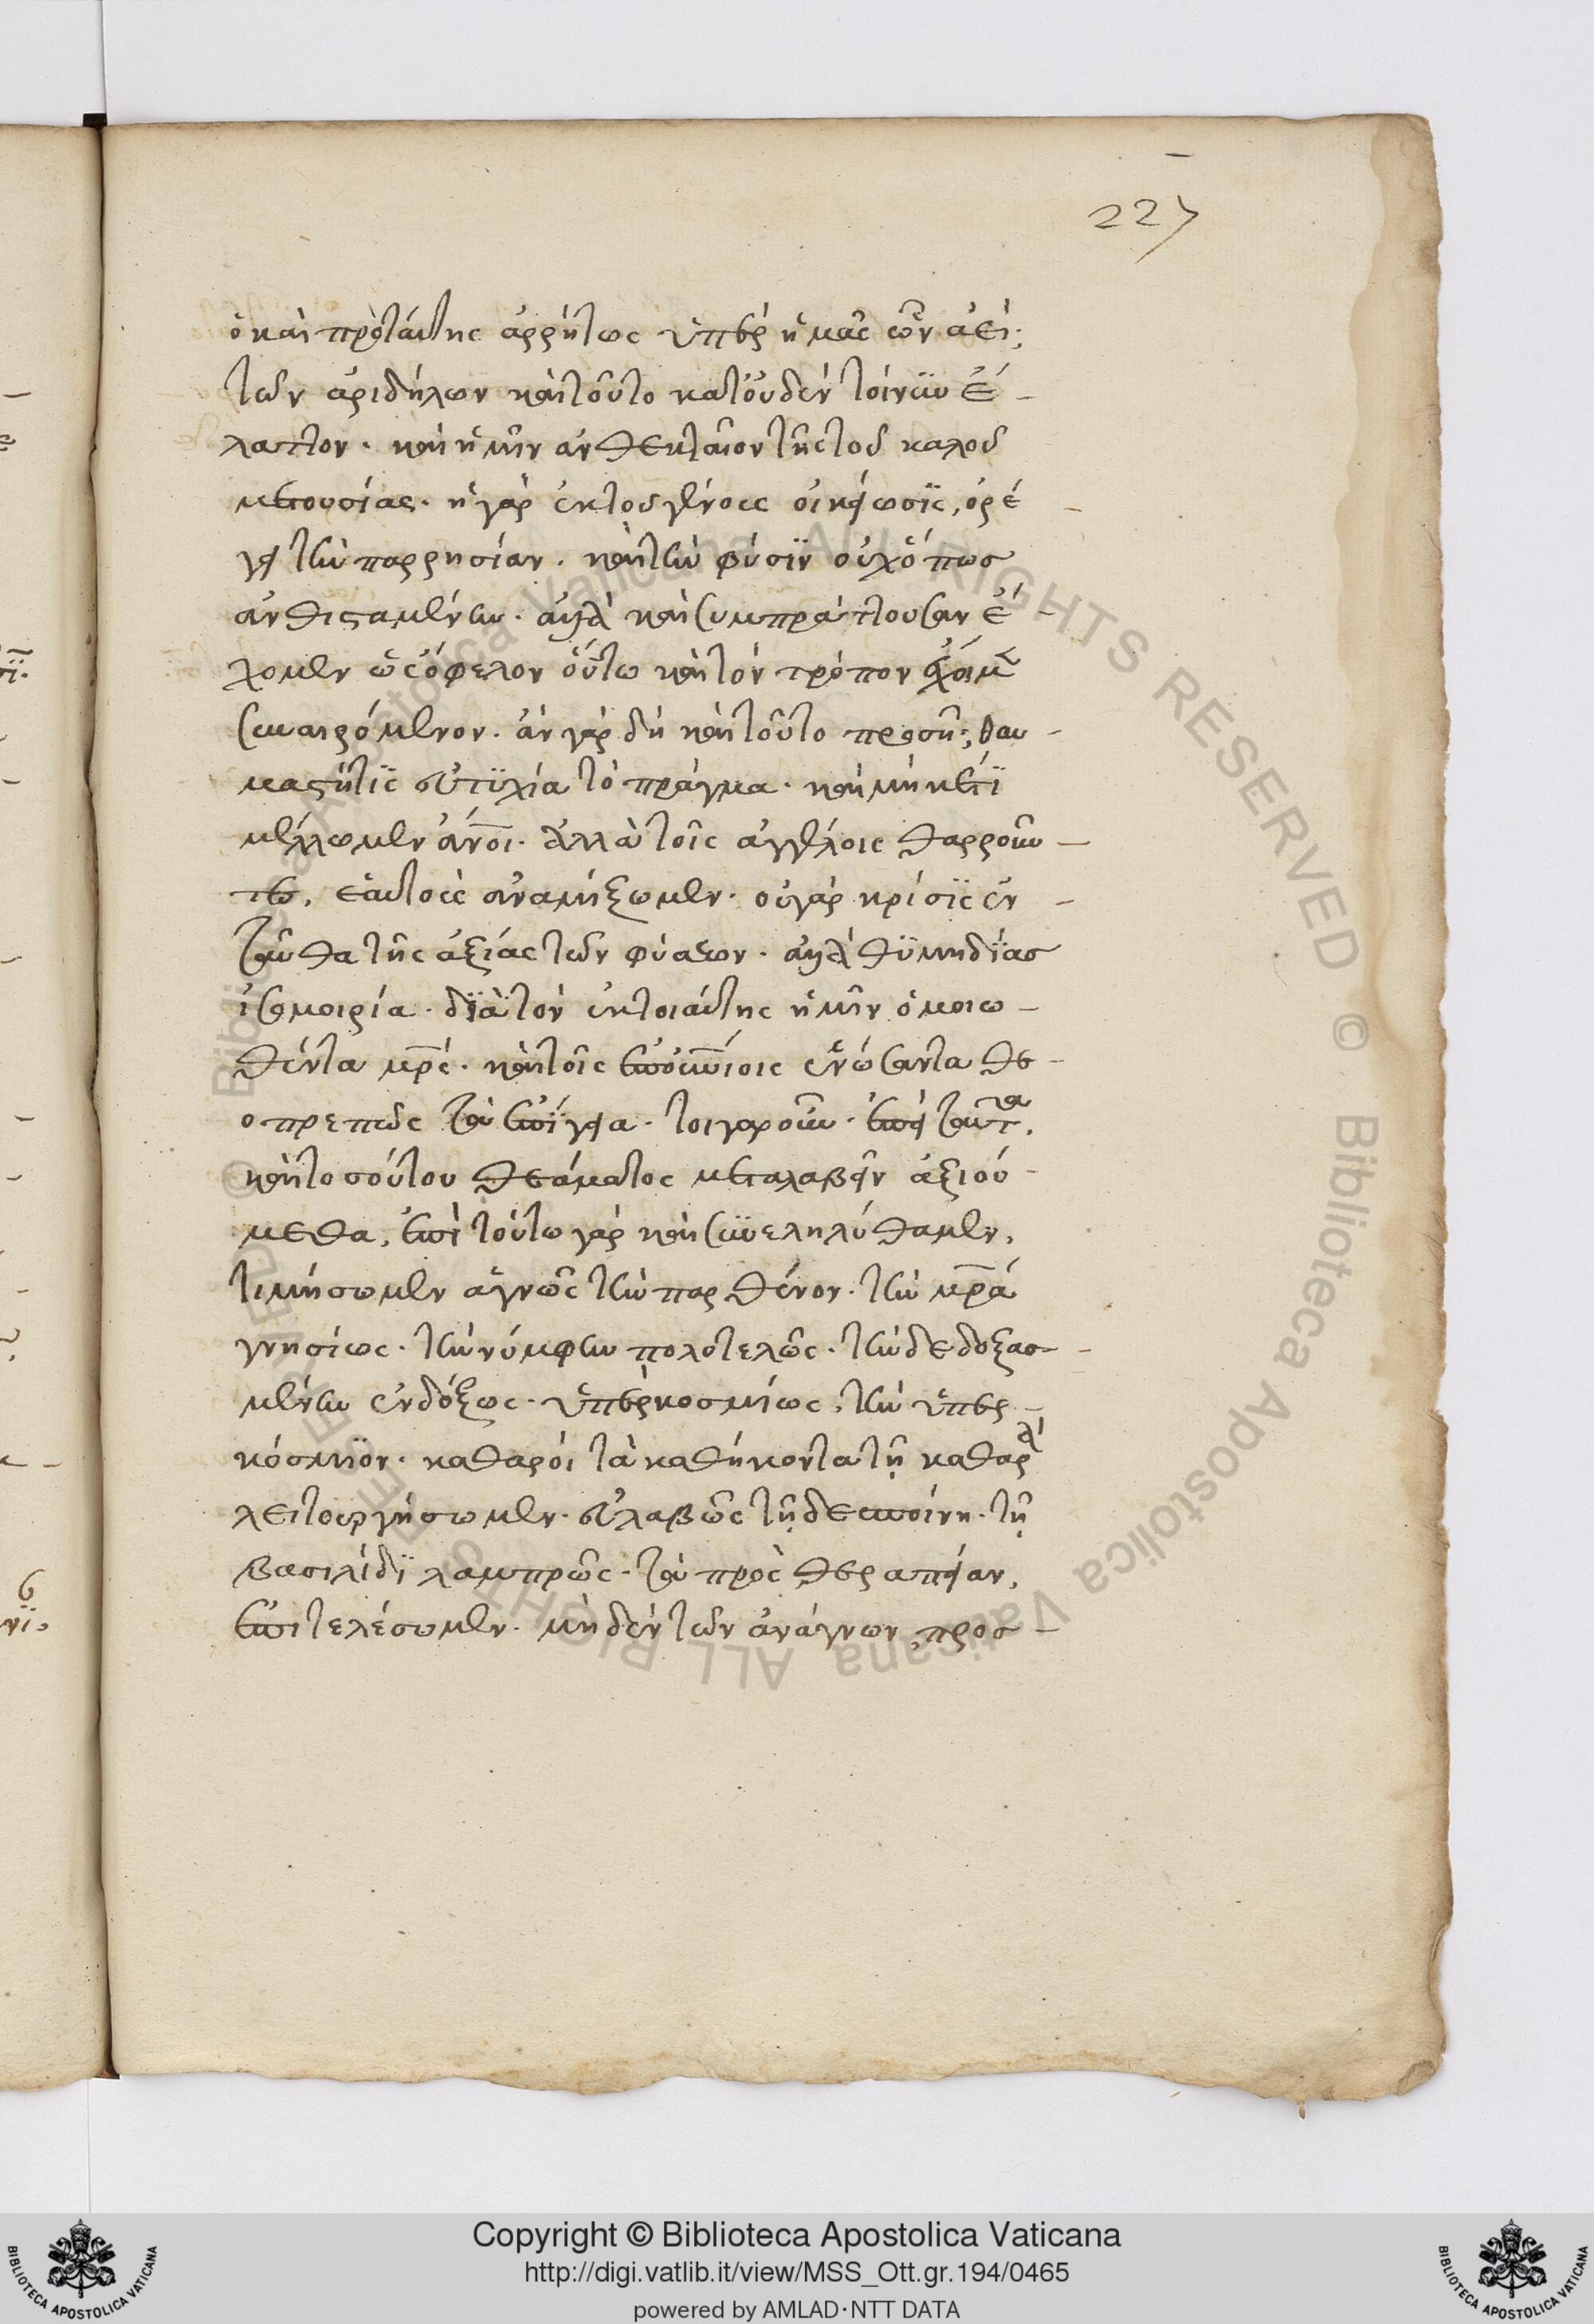 227
ὁ καὶ πρὸ ταύτης ἀρρήτως ὑπὲρ ἡμᾶς ὢν ἀεί·
τῶν ἀριδήλων καὶ τοῦτο κατ' οὐδὲν τοίνυν ἔ-
λαττον· καὶ ἡμῖν ἀνθεκταῖον τῆς τοῦ καλοῦ
μετουσίας· ἡ γὰρ ἐκ τοῦ γένους οἰκείωσις, ὀρέ-
γει τὴν παρρησίαν· καὶ τὴν φύσιν οὐχ ὅπως
ἀνθισταμένην· ἀλλὰ καὶ συμπράττουσαν ἔ-
χομεν ὡς ὄφελον οὕτω καὶ τὸν τρόπον
συναιρόμενον· ἂν γὰρ δὴ καὶ τοῦτο προσῇ, θαυ-
μαστή τις εὐτυχία τὸ πρᾶγμα· καὶ μηκέτι
μέλλωμεν ἄνοι· ἀλλὰ τοῖς ἀγγέλοις θαρροῦν-
τες, ἑαυτοὺς ἀναμίξωμεν· οὐ γὰρ κρίσις ἐν-
ταῦθα τῆς ἀξίας τῶν φύσεων· ἀλλὰ θυμηδίας
ἰσομοιρία· διὰ τὸν ἐκ τοιαύτης ἡμῖν ὁμοιω-
θέντα μρς· καὶ τοῖς ἐπουνίοις ἑνώσαντα θε-
οπρεπῶς τὰ ἐπίγεια· τοιγαροῦν· ἐπεὶ ταύτ,
καὶ τοσούτου θεάματος μεταλαβεῖν ἀξιού-
μεθα, ἐπὶ τούτω γὰρ καὶ συνεληλύθαμεν,
τιμήσωμεν ἁγνῶς τὴν παρθένον· τὴν μρα
γνησίως· τὴν νύμφην πολυτελῶς· τὴν δεδοξασ-
μένην ἐνδόξως· ὑπερκοσμίως, τὴν ὑπερ-
κόσμιον· καθαροὶ τὰ καθήκοντα τῇ καθαρᾷ
λειτουργήσωμεν· εὐλαβῶς τῇ δεσποίνῃ· τῇ
βασιλίδι λαμπρῶς· τὰ πρὸς θεραπείαν,
ἐπιτελέσωμεν· μηδὲν τῶν ἀνάγνων, προσ-
Copyright © Biblioteca Apostolica Vaticana
http://digi.vatlib.it/view/MSS_Ott.gr.194/0465
powered by AMLAD·NTT DATA